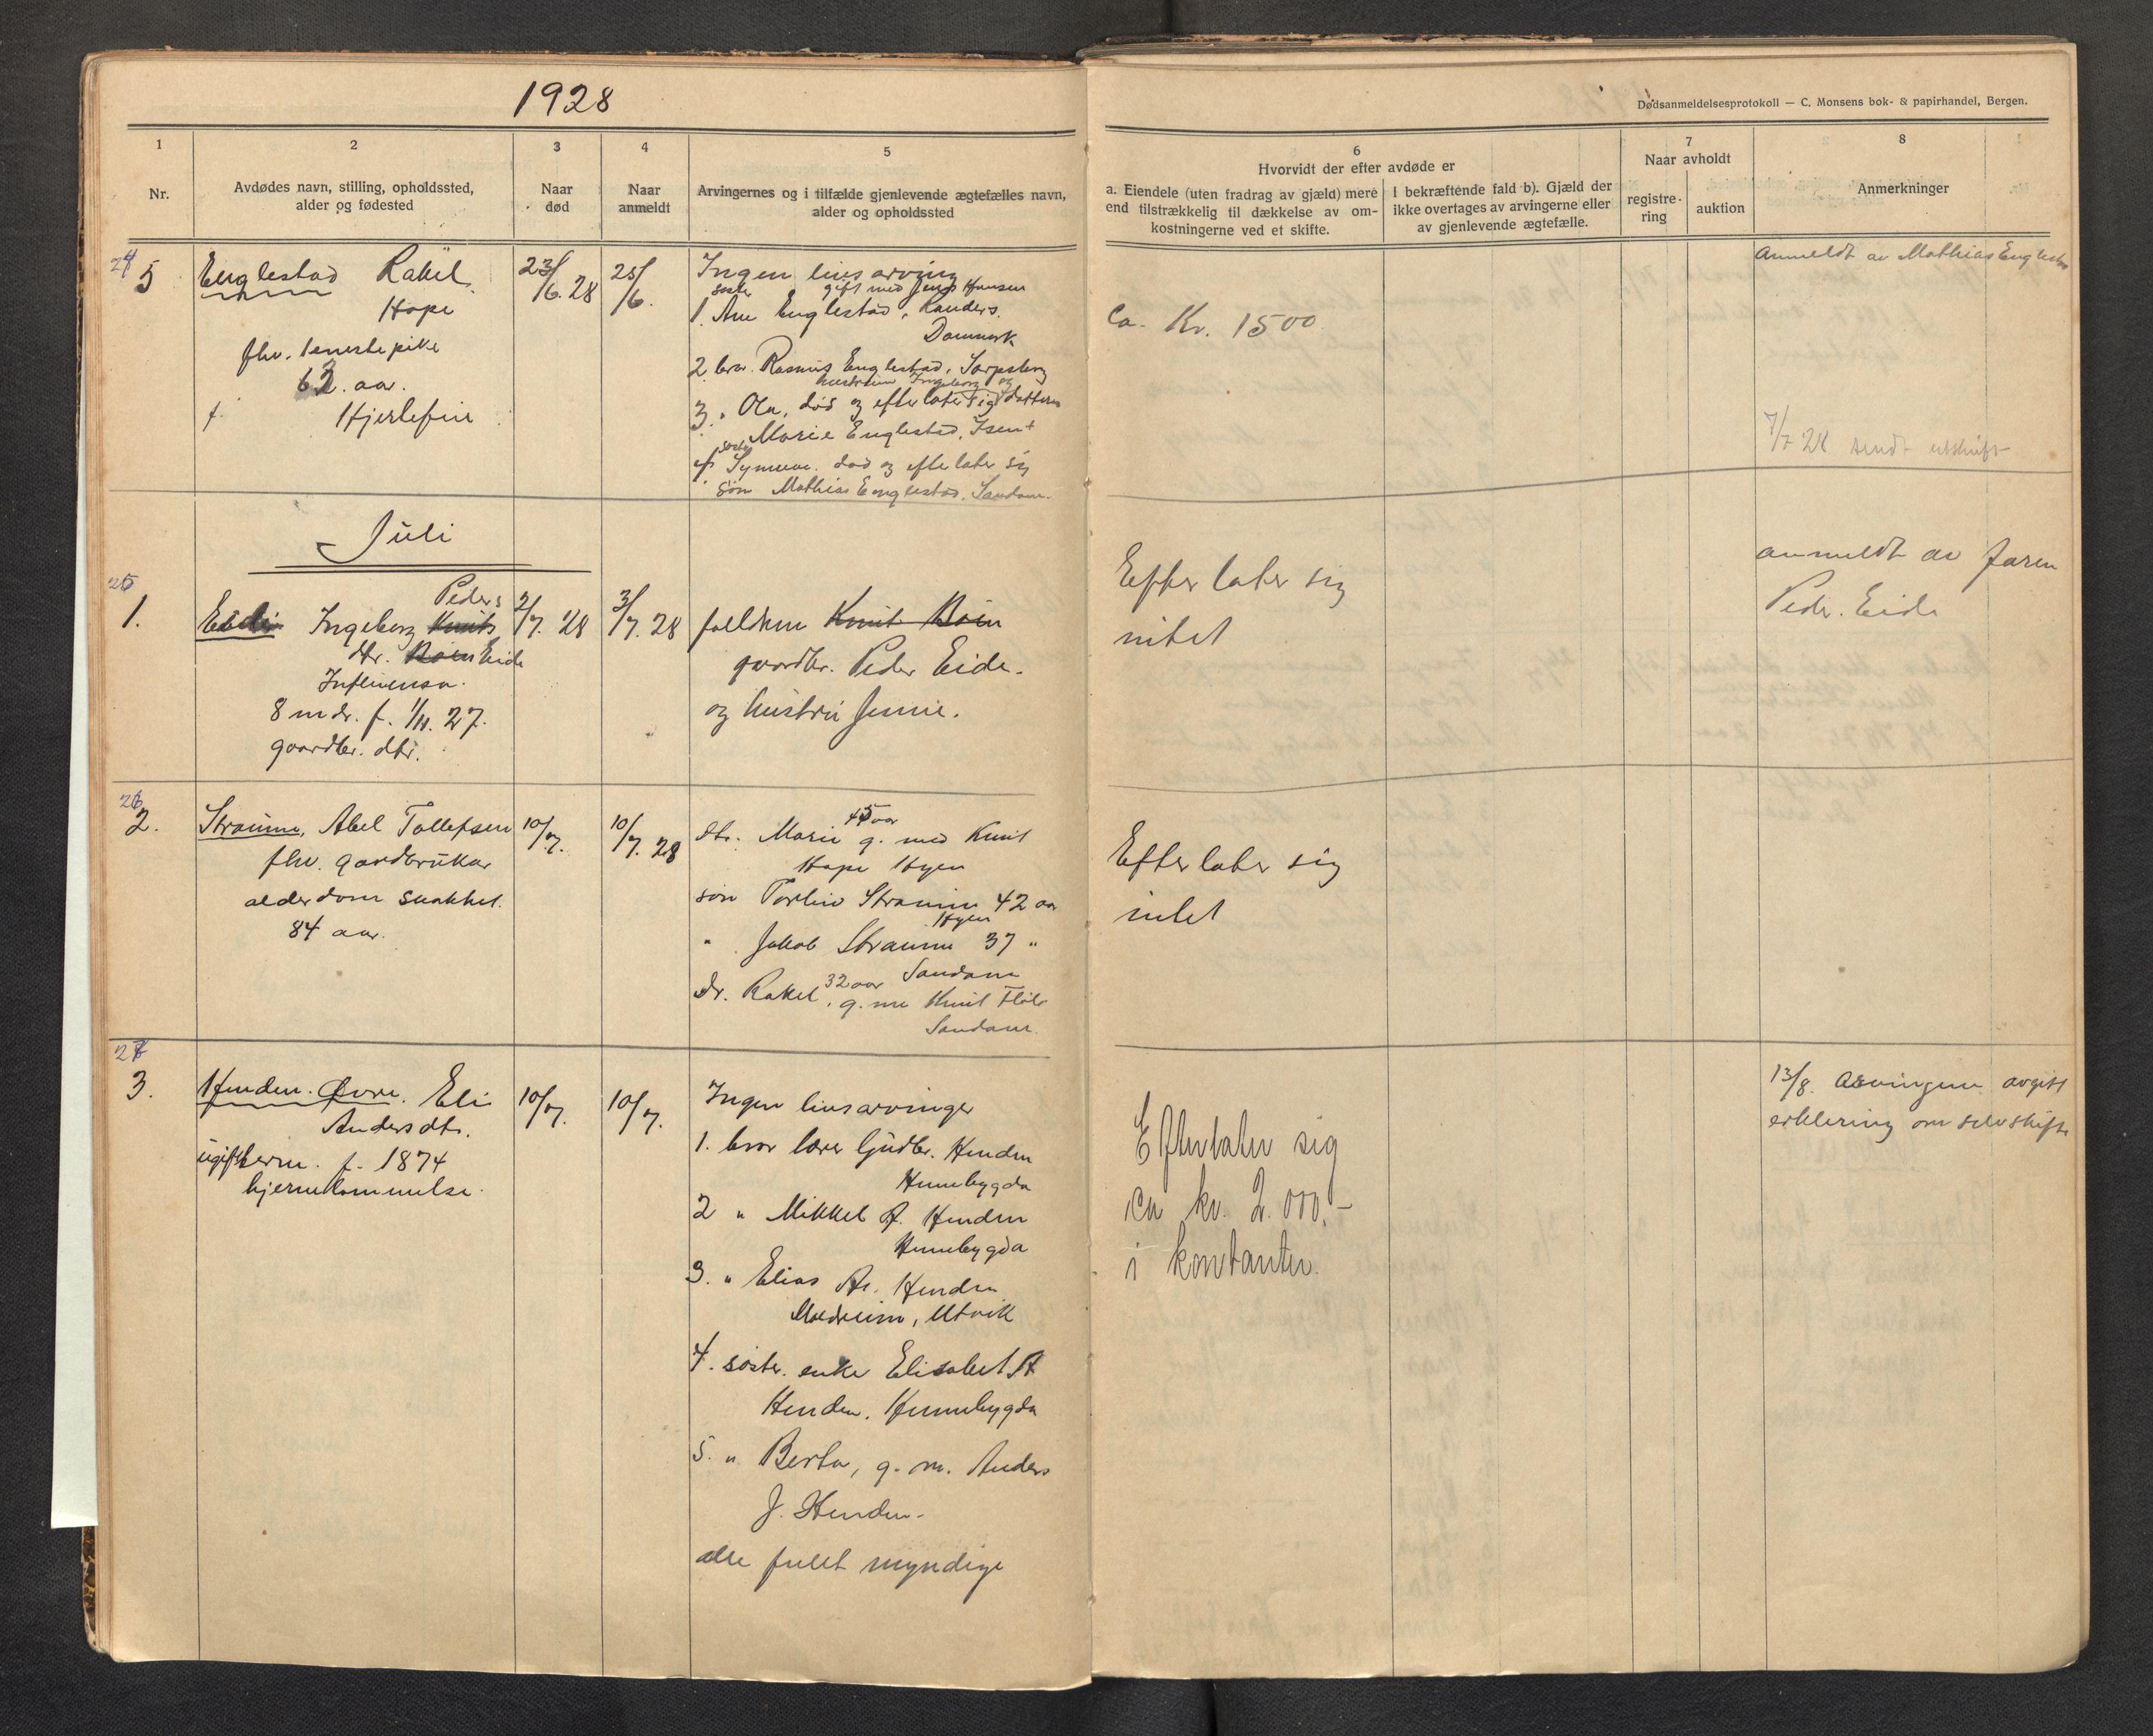 1928
Dødsanmeldelsesprotokoll — C. Monsens bok- & papirhandel, Bergen.
1
Nr.
2
Avdødes navn, stilling, opholdssted,
alder og fødested
3
Naar
død
4
Naar
anmeldt
5
Arvingernes og i tilfælde gjenlevende ægtefælles navn,
alder og opholdssted
6
Hvorvidt der efter avdøde er
a. Eiendele (uten fradrag av gjæld) mere
end tilstrækkelig til dækkelse av om-
kostningerne ved et skifte.
I bekræftende fald b). Gjæld der
ikke overtages av arvingerne eller
av gjenlevende ægtefælle.
7
Naar avholdt
registre-
ring
auktion
8
Anmerkninger
24
5
Englestad Rakel.
Hope
fhv. tenestepike
62. aar.
f. Hjerlefin
23/6. 28
25/6.
Ingen livsarving
søster gift med Jens Hansen
1. Ane Englestad, Randers.
Danmark
2. bror. Rasmus Englestad, Sarpsborg
hustruen Ingeborg og
3. " Ola, død og efterlater sig datteren
Marie Englestad, Isen +
søster
4. Synneve. død og efterlater sig
søn Mathias Englestad. Sandane.
Ca. Kr. 1500
anmeldt av Mathias Englestad
7/7 28 sendt utskrift
Juli
25
1.
Eide Ingeborg Knuts Peders
dtr. Eide
Influensa.
8 mdr. f. 1/11. 27.
gaardbr. dtr.
2/7. 28
3/7. 28
foeldren Knut
gaardbr. Peder Eide.
og hustru Jennie.
Efterlater sig
intet
anmeldt av faren
Peder. Eide
26
2.
Straume, Abel Tollefsen
fhv. gardbrukar
alderdom svakhet.
84 aar.
10/7.
10/7. 28
dtr. Marie 45 aar g. med Knut
Hope Hyen
søn Torleiv Straume 42 aar
Hyen
" Jakob Straume 37 "
Sandane
dr. Rakel, 32 aar g. m Knut Fløle
Sandane.
Efterlater sig
intet
27
3.
Henden. Øvre. Eli
Andersdtr.
ugift f. 1874
hjernelammelse.
10/7.
10/7.
Ingen livsarvinger
1. bror lærer Gudbr. Henden
Hennebygda
2 " Mikkel A. Henden
Hennebygda
3. " Elias A. Henden
Moldreim, Utvik
4. søster. enke Elisabet A
Henden. Hennebygda
5. " Berta, g. m. Anders
J. Henden.
alle fullt myndige
Efterlater sig
ca kr. 2.000,-
i kontanter.
13/8. Arvingene avgitt
erklering om selvskifte